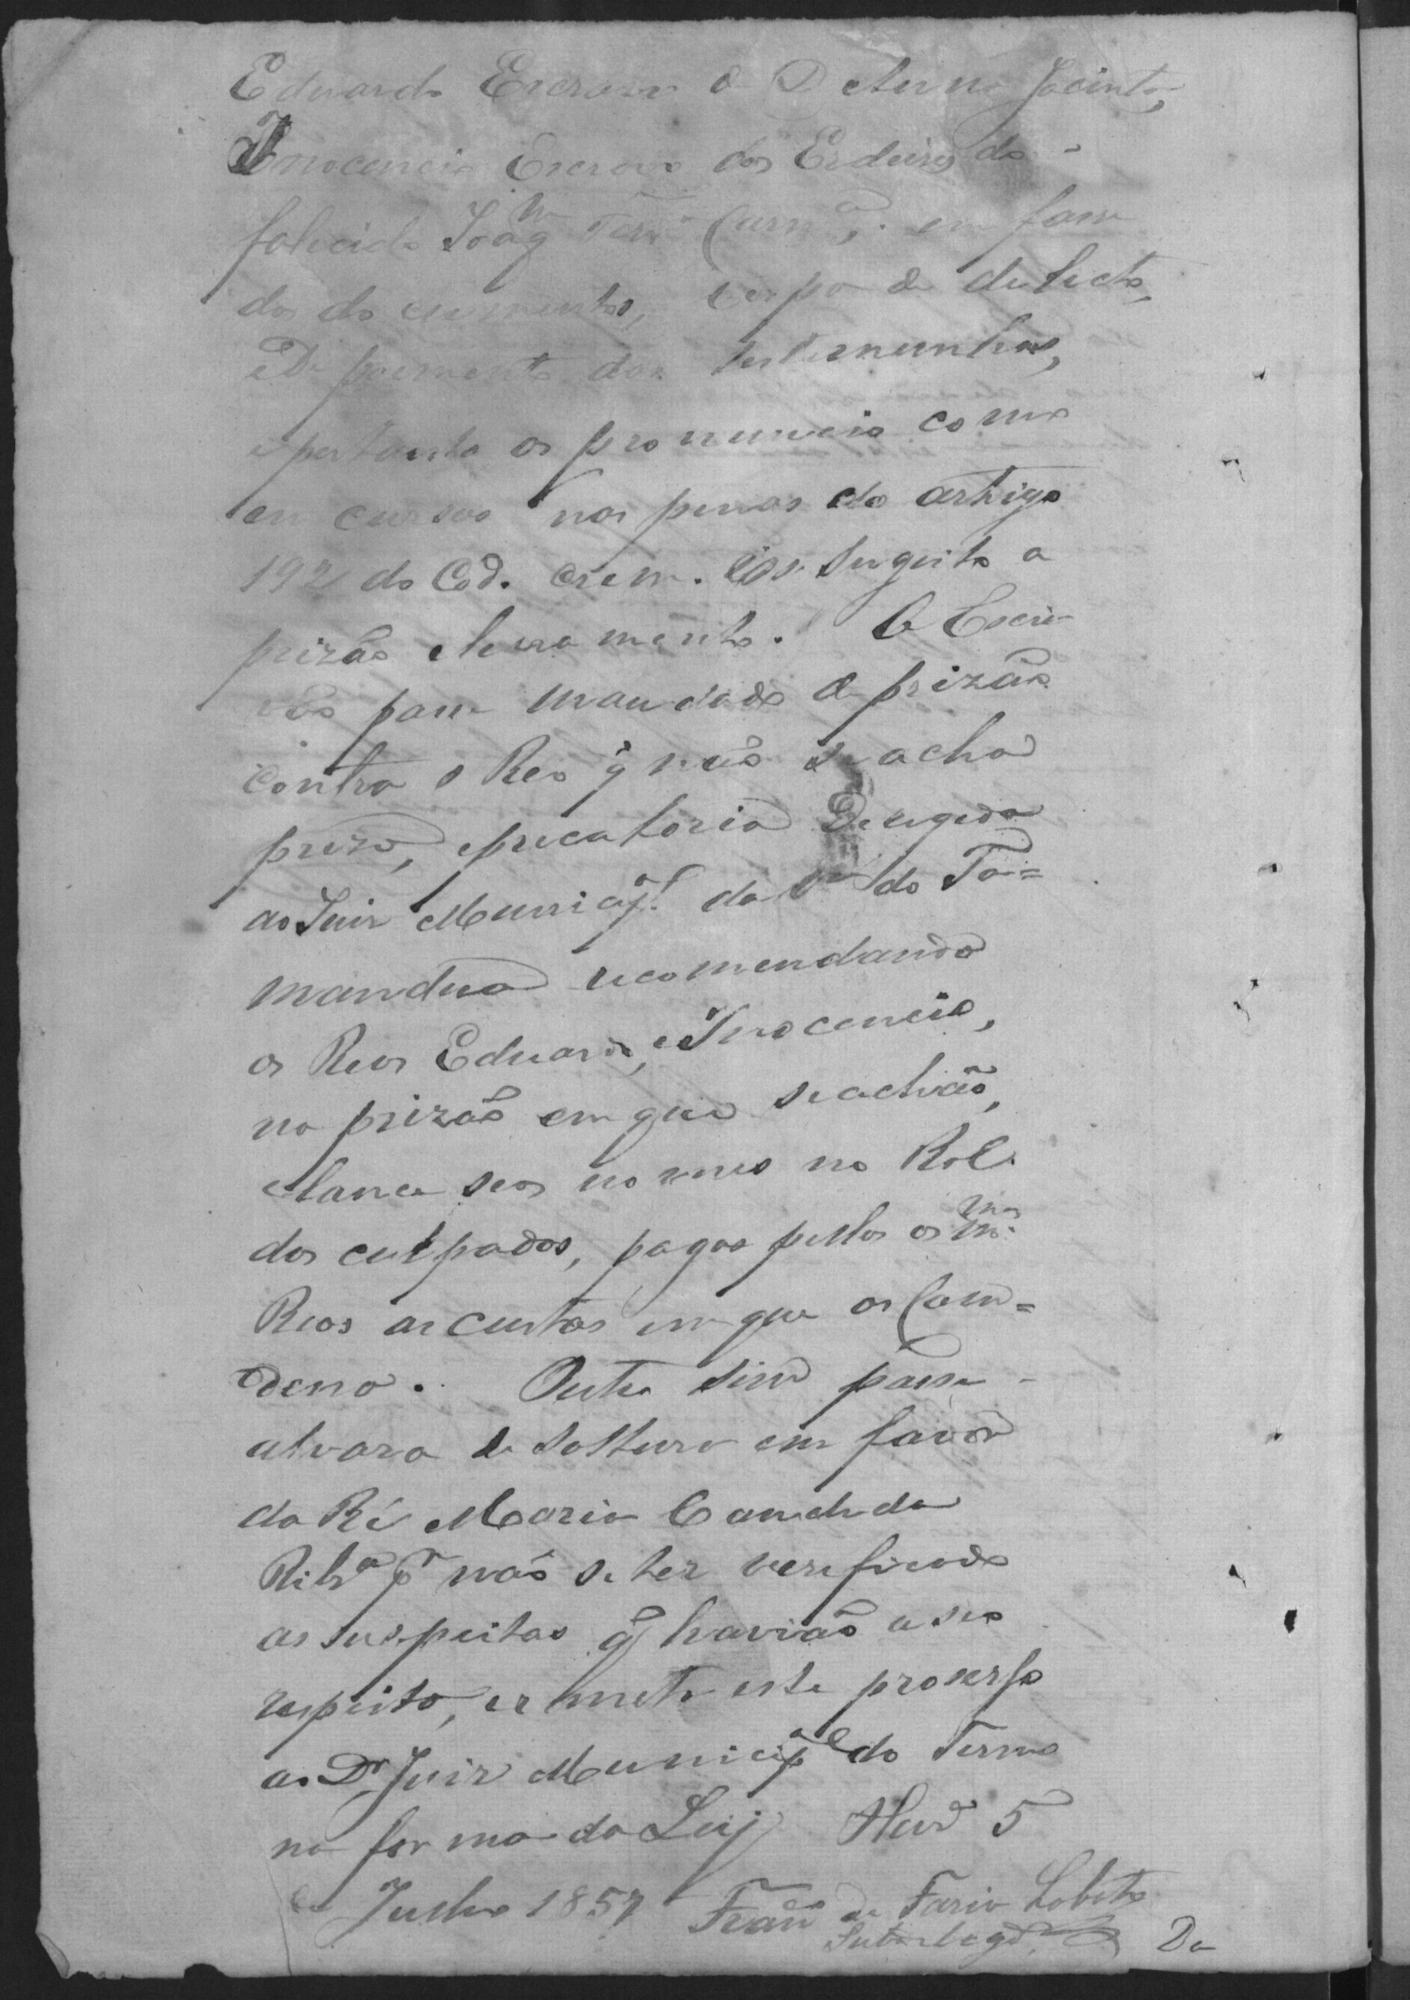 Eduardo Escravo de D Anna Jacinta,
Innocencio Escravo dos Erdeiros do
falecido Joaqm Carnro, em fase
dos do cumentos, corpo de delicto,
e De poimento das testemunhas,
e portanto os pronuncio como
en cursos nas penas do artigo
192 do Cod. Crem. e os sugeito a
prizão e livramento. O Escri
vão passe mandado de prizão
contra o Reo q não se acha
prezo, e precatoria Deregida
ao Juis Municipl. da Va do Ta=
manduá recomendando
os Reos Eduardo, e Innocencio,
na prizão em que se achão,
e lance seos nomes no Rol
dos culpados, pagas pellos os mmos
Reos as custas em que os Com=
deno. Outro sim passe
alvara de soltura em favor
da Ré Maria Candida
Ribra pr não se ter verificado
as suspeitas q havião a seo
respeito, e remeta este prosesso
ao Dr Juiz Municipl do Termo
na forma da Ley 5
de Julho 1857 Franco de Faria Lobato
Subdelegdo
Da